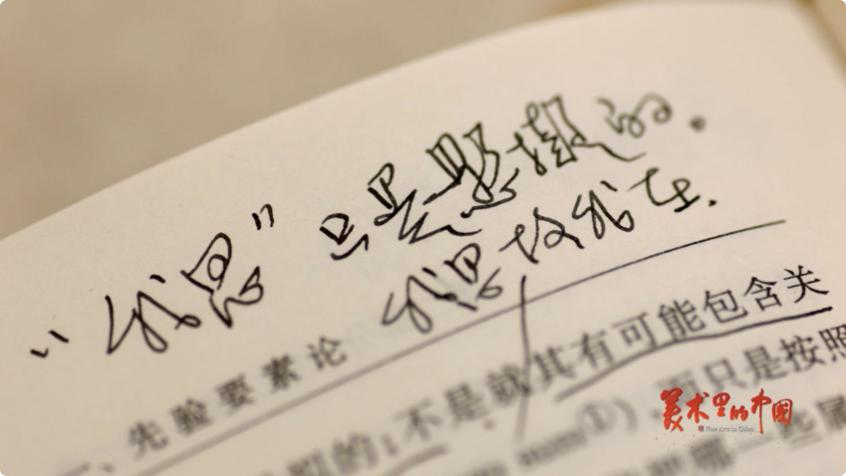 “我思”只是悬摆的.
我思故我在.
一、先验要素论
的；不是就其有可能包含关
①），而只是按照
一些属
美术里的中国
Fine Arts in China